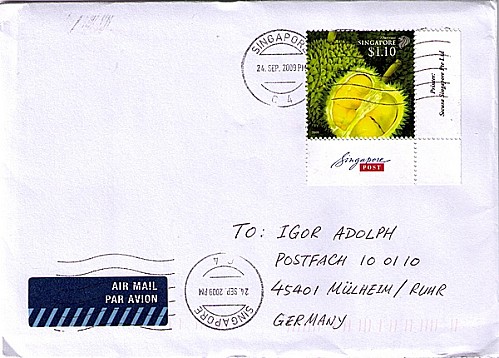 SINGAPORE
24. SEP. 2009 PM
C 4
SINGAPORE
$1.10
Printer:
Secura Singapore Pte Ltd
Singapore
POST
TO: IGOR ADOLPH
POSTFACH 10 01 10
45401 MÜLHEIM/RUHR
GERMANY
C 4
24. SEP. 2009 PM
SINGAPORE
AIR MAIL
PAR AVION